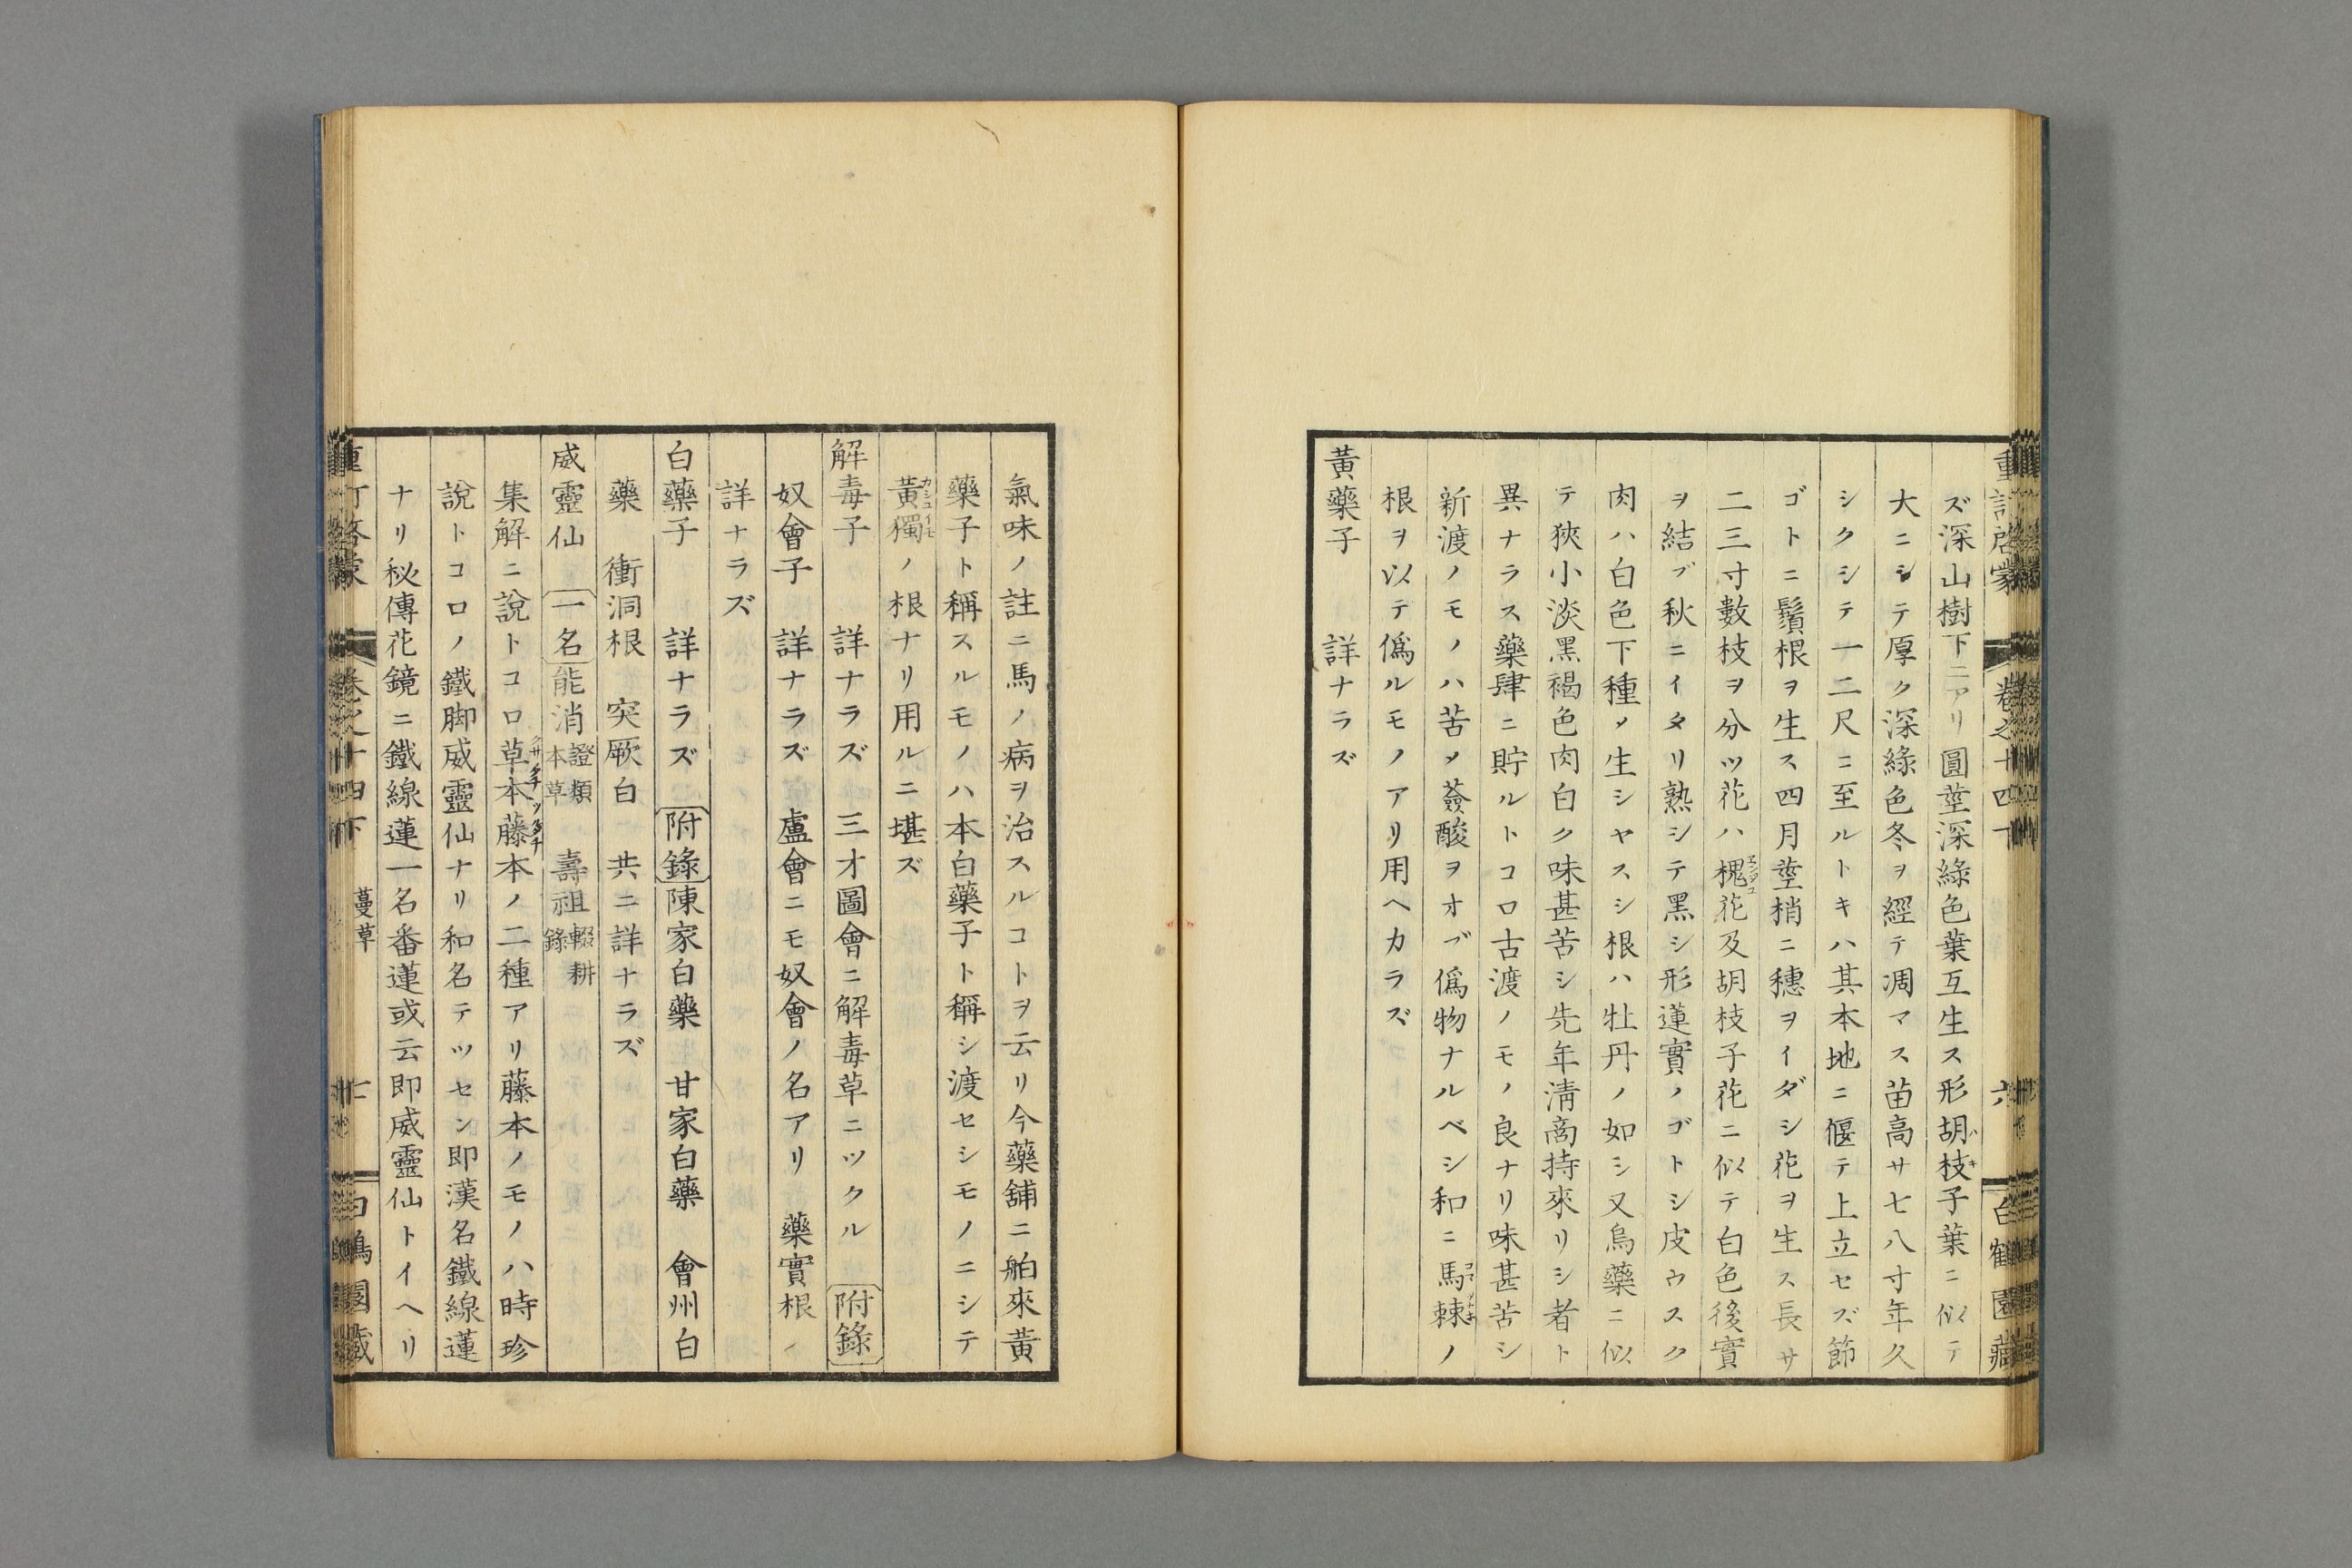 重訂啓蒙 卷之十四下 六 白鶴園藏
ズ深山樹下ニアリ圓莖深綠色葉互生ス形胡枝子葉ニ似テ
大ニシテ厚ク深綠色冬ヲ經テ凋マス苗高サ七八寸年久
シクシテ一二尺ニ至ルトキハ其本地ニ偃テ上立セズ節
ゴトニ鬚根ヲ生ス四月莖梢ニ穗ヲイダシ花ヲ生ス長サ
二三寸數枝ヲ分ツ花ハ槐花及胡枝子花ニ似テ白色後實
ヲ結ブ秋ニイタリ熟シテ黑シ形蓮實ノゴトシ皮ウスク
肉ハ白色下種メ生シヤスシ根ハ牡丹ノ如シ又烏藥ニ似
テ狹小淡黑褐色肉白ク味甚苦シ先年淸商持來リシ者ト
異ナラス藥肆ニ貯ルトコロ古渡ノモノ良ナリ味甚苦シ
新渡ノモノハ苦メ薟酸ヲオブ僞物ナルベシ和ニ馬棘ノ
根ヲ以テ僞ルモノアリ用ヘカラズ
黃藥子 詳ナラズ
氣味ノ註ニ馬ノ病ヲ治スルコトヲ云リ今藥舖ニ舶來黃
藥子ト稱スルモノハ本白藥子ト稱シ渡セシモノニシテ
黃獨ノ根ナリ用ルニ堪ズ
解毒子 詳ナラズ 三才圖會ニ解毒草ニツクル 附錄
奴會子 詳ナラズ 盧會ニモ奴會ノ名アリ 藥實根
詳ナラズ
白藥子 詳ナラズ 附錄 陳家白藥 甘家白藥 會州白
藥 衝洞根 突厥白 共ニ詳ナラズ
威靈仙 一名 能消 證類本草 壽祖 輟耕錄
集解ニ說トコロ草本藤本ノ二種アリ藤本ノモノハ時珍
說トコロノ鐵脚威靈仙ナリ和名テツセン即漢名鐵線蓮
ナリ秘傳花鏡ニ鐵線蓮一名番蓮或云即威靈仙トイヘリ
重訂啓蒙 卷之十四下 蔓草 七 白鶴園藏